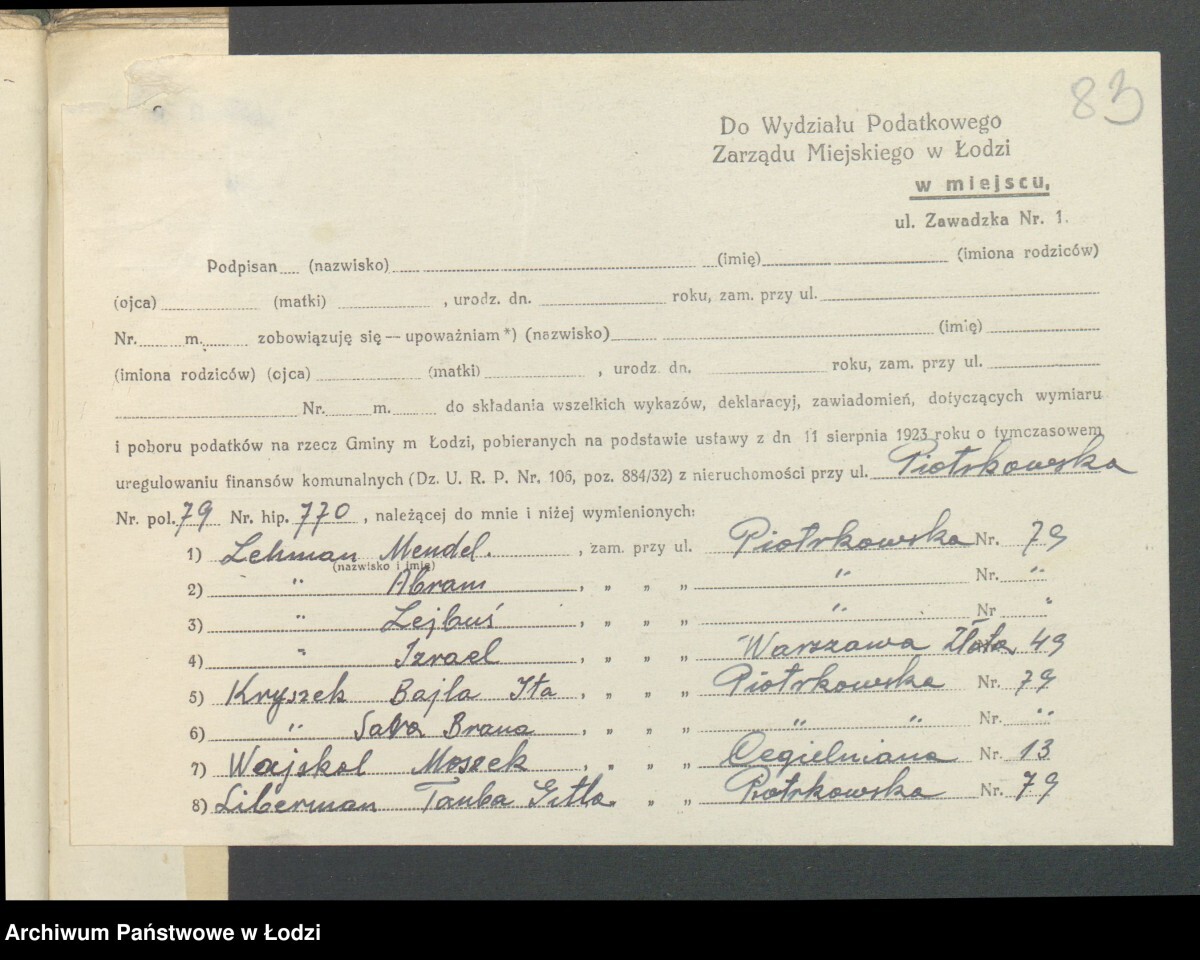 83
Do Wydziału Podatkowego
Zarządu Miejskiego w Łodzi
w miejscu,
ul. Zawadzka Nr. 1.
Podpisan.... (nazwisko) (imię) (imiona rodziców)
(ojca) (matki) , urodz. dn. roku, zam. przy ul.
Nr. m. zobowiązuję się — upoważniam *) (nazwisko) (imię)
(imiona rodziców) (ojca) (matki) , urodz. dn. roku, zam. przy ul.
Nr. m. do składania wszelkich wykazów, deklaracyj, zawiadomień, dotyczących wymiaru
i poboru podatków na rzecz Gminy m Łodzi, pobieranych na podstawie ustawy z dn 11 sierpnia 1923 roku o tymczasowem
uregulowaniu finansów komunalnych (Dz. U. R. P. Nr. 106, poz. 884/32) z nieruchomości przy ul. Piotrkowska
Nr. pol. 79 Nr. hip. 770 , należącej do mnie i niżej wymienionych:
1) Lehman Mendel. , zam. przy ul. Piotrkowska Nr. 79
(nazwisko i imię)
2) " Abram , „ „ „ " Nr. "
3) " Lejbuś , „ „ „ " Nr "
4) " Izrael , „ „ „ Warszawa Złota 49
5) Kryszek Bajla Ita , „ „ „ Piotrkowska Nr. 79
6) " Brana , „ „ „ " " Nr. "
7) Wajskol Moszek , „ „ „ Cegielniana Nr. 13
8) Liberman Tauba Gitla. „ „ Piotrkowska Nr. 79
Archiwum Państwowe w Łodzi